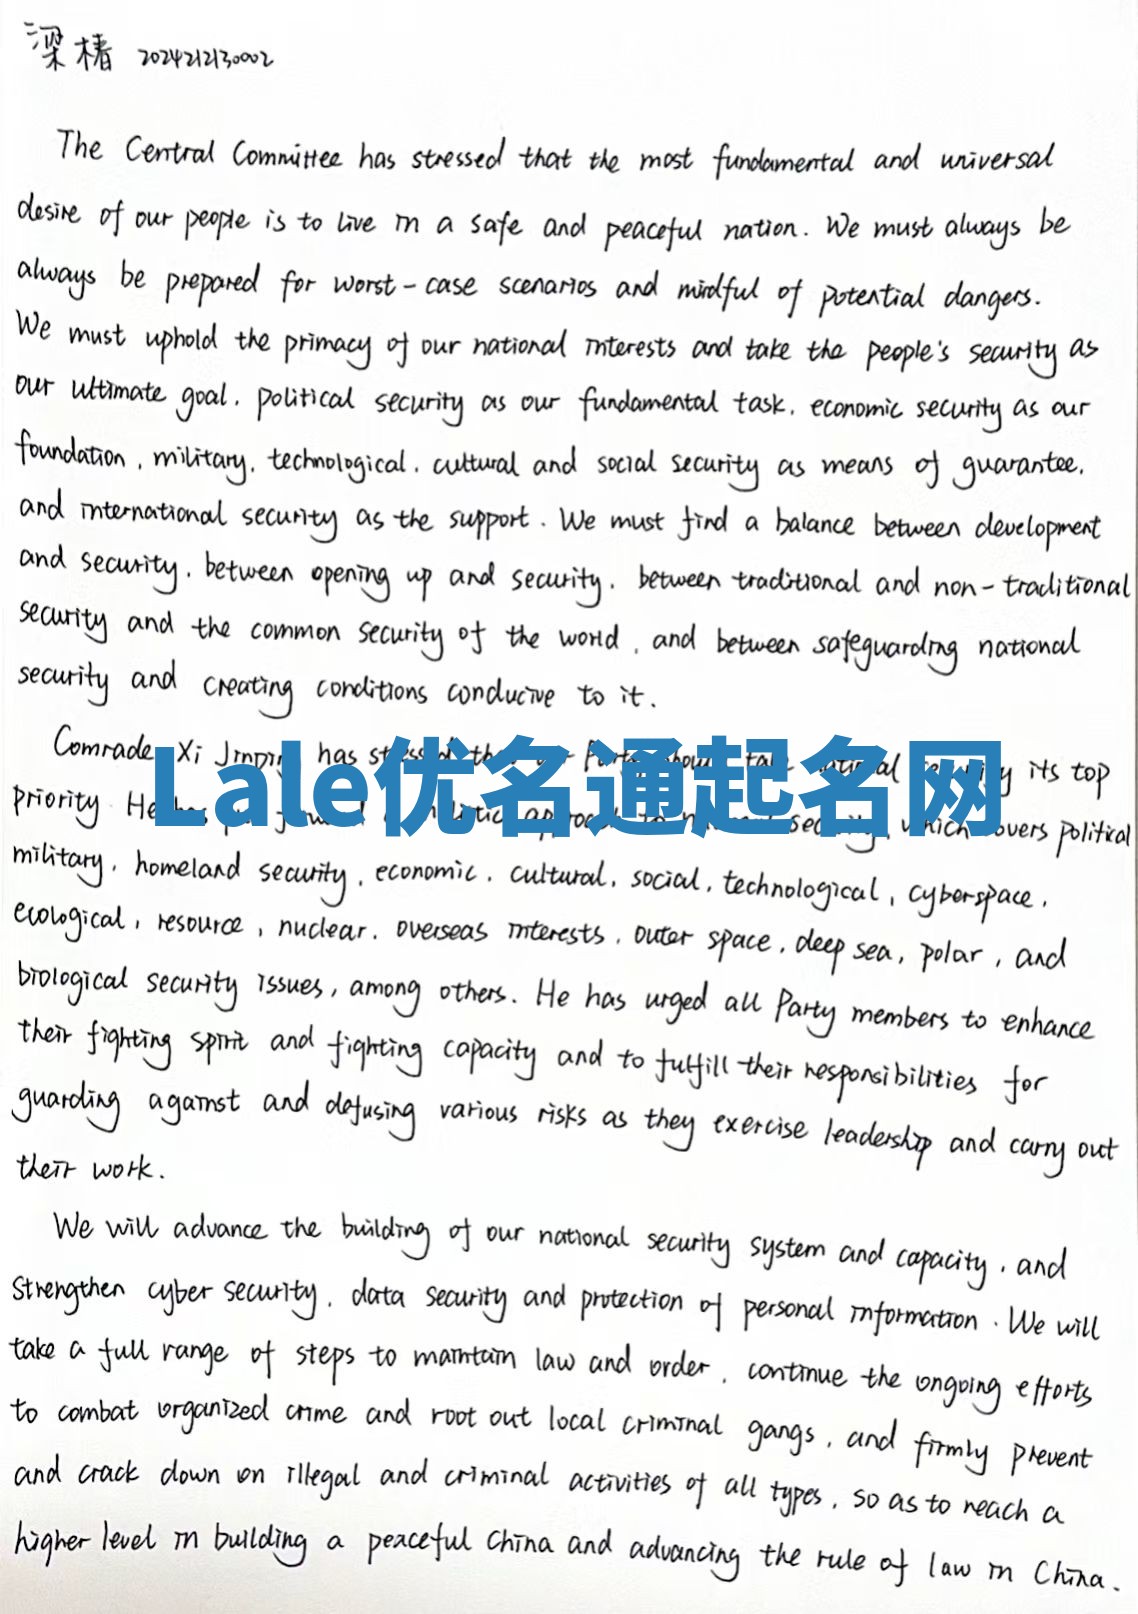 梁椿 2024212130002
The Central Committee has stressed that the most fundamental and universal
desire of our people is to live in a safe and peaceful nation. We must always be
always be prepared for worst-case scenarios and mindful of potential dangers.
We must uphold the primacy of our national interests and take the people's security as
our ultimate goal, political security as our fundamental task, economic security as our
foundation, military, technological, cultural and social security as means of guarantee,
and international security as the support. We must find a balance between development
and security, between opening up and security, between traditional and non-traditional
security and the common security of the world, and between safeguarding national
security and creating conditions conducive to it.
Comrade Xi Jinping has stressed its top
Lale优名通起名网
priority He security, which covers political
military, homeland security, economic, cultural, social, technological, cyberspace,
ecological, resource, nuclear, overseas interests, outer space, deep sea, polar, and
biological security issues, among others. He has urged all Party members to enhance
their fighting spirit and fighting capacity and to fulfill their responsibilities for
guarding against and defusing various risks as they exercise leadership and carry out
their work.
We will advance the building of our national security system and capacity, and
strengthen cyber security, data security and protection of personal information. We will
take a full range of steps to maintain law and order, continue the ongoing efforts
to combat organized crime and root out local criminal gangs, and firmly prevent
and crack down on illegal and criminal activities of all types, so as to reach a
higher level in building a peaceful China and advancing the rule of law in China.